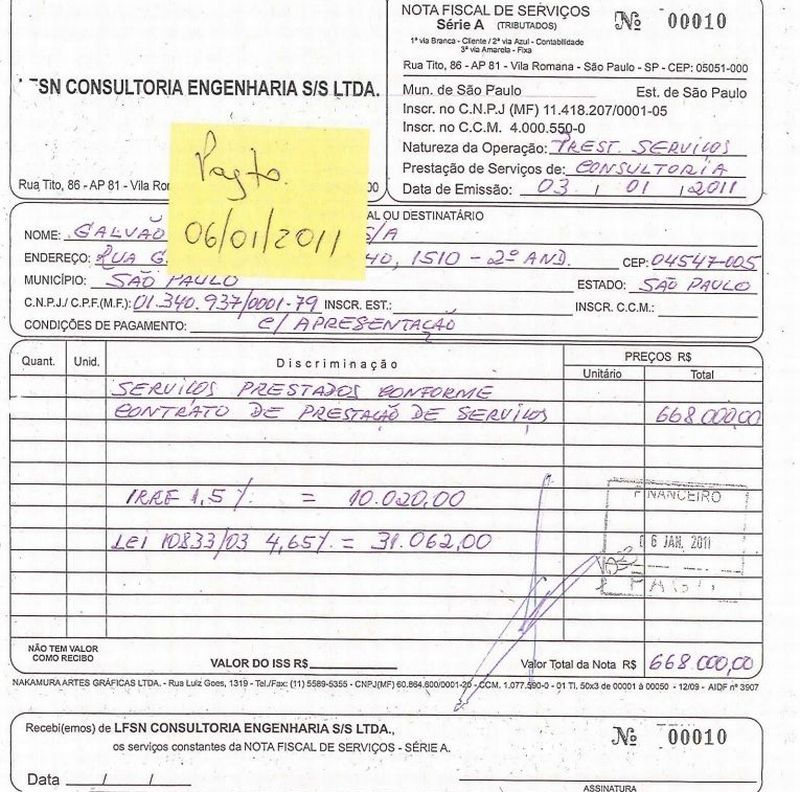 NOTA FISCAL DE SERVIÇOS
Série A (TRIBUTADOS)
Nº 00010
1ª via Branca - Cliente / 2ª via Azul - Contabilidade
3ª via Amarela - Fixa
Rua Tito, 86 - AP 81 - Vila Romana - São Paulo - SP - CEP: 05051-000
LFSN CONSULTORIA ENGENHARIA S/S LTDA.
Mun. de São Paulo Est. de São Paulo
Inscr. no C.N.P.J (MF) 11.418.207/0001-05
Inscr. no C.C.M. 4.000.550-0
Natureza da Operação: PREST. SERVIÇOS
Prestação de Serviços de: CONSULTORIA
Data de Emissão: 03 / 01 / 2011
Rua Tito, 86 - AP 81 - Vila
Pagto.
06/01/2011
OU DESTINATÁRIO
NOME: GALVÃO S/A
ENDEREÇO: RUA G 40, 1510 - 2º AND. CEP: 04547-005
MUNICÍPIO: SÃO PAULO ESTADO: SÃO PAULO
C.N.P.J./ C.P.F.(M.F.): 01.340.937/0001-79 INSCR. EST.: INSCR. C.C.M.:
CONDIÇÕES DE PAGAMENTO: c/ APRESENTAÇÃO
Quant. Unid. Discriminação PREÇOS R$
Unitário Total
SERVIÇOS PRESTADOS CONFORME
CONTRATO DE PRESTAÇÃO DE SERVIÇOS 668.000,00
IRRF 1,5% = 10.020,00
LEI 10833/03 4,65% = 31.062,00
FINANCEIRO
06 JAN. 2011
NÃO TEM VALOR
COMO RECIBO
VALOR DO ISS R$ Valor Total da Nota R$ 668.000,00
NAKAMURA ARTES GRÁFICAS LTDA. - Rua Luiz Goes, 1319 - Tel./Fax: (11) 5589-5355 - CNPJ(MF) 60.864.600/0001-20 - CCM. 1.077.590-0 - 01 Tl. 50x3 de 00001 à 00050 - 12/09 - AIDF nº 3907
Recebi(emos) de LFSN CONSULTORIA ENGENHARIA S/S LTDA.,
os serviços constantes da NOTA FISCAL DE SERVIÇOS - SÉRIE A.
Nº 00010
Data / /
ASSINATURA